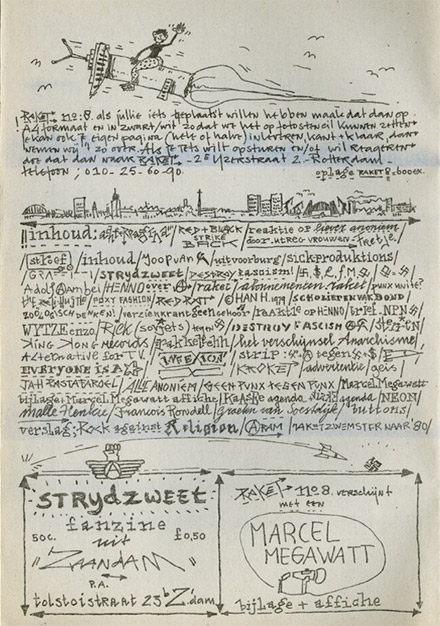 RAKET no: 8. als jullie iets geplaatst willen hebben maak dat dan op
A4 formaat en in zwart/wit zodat we het op fotostencil kunnen zetten
je kan ook 1 eigen pagina (hele of halve) inleveren, kant + klaar, dan
nemen wij 't zo over. Als je iets wilt opsturen en/of wil reageren
doe dat dan naar RAKET - 2e IJzerstraat 2 - Rotterdam -
telefoon; 010-25-60-90.
oplage RAKET 8: 600 ex.
inhoud: / RED + BLACK STRIKE BACK / reaktie op liever anoniem
door UTREG VROUWEN
stroef / inhoud / Joop van / uit voorburg / sick produktions /
STRYDZWEET / DESTROY fascism! /
Adolf / HENNO over / raket / abonnementen raket / PUNX UNITE?
POXY FASHION / RED RAT / © HAN H. 1979 / SCHOLIERENVAKBOND
ZOÖLOGISCH DENKEN! / verziekkrant geen school / reaktie op HENNO / triet - NPN
WYTZE enzo. / RICK / sovjets / DESTROY FASCISM /
KING KONG records / gakketehh / het verschijnsel Anarchisme /
Alternative for T.V. / / strip: tegen /
EVERYONE is A / / KROKET / advertentie / geis /
JAH RASTAFARGEL / ALLE ANONIEM / GEEN PUNX TEGEN PUNX / Marcel Megawatt
bijlage: Marcel Megawatt affiche / Raaske agenda agenda / NEON /
malle Henkie / Francois Rondell / Graeten van Soestdijk / buttons /
verslag: Rock against Religion / RAM / RAKETZWEMSTER NAAR '80 /
STRYDZWEET
fanzine
50c. uit £0,50
"ZAANDAM"
P.A.
tolstoistraat 23 Z'dam
RAKET no 8. verschijnt
met een
MARCEL
MEGAWATT
bijlage + affiche